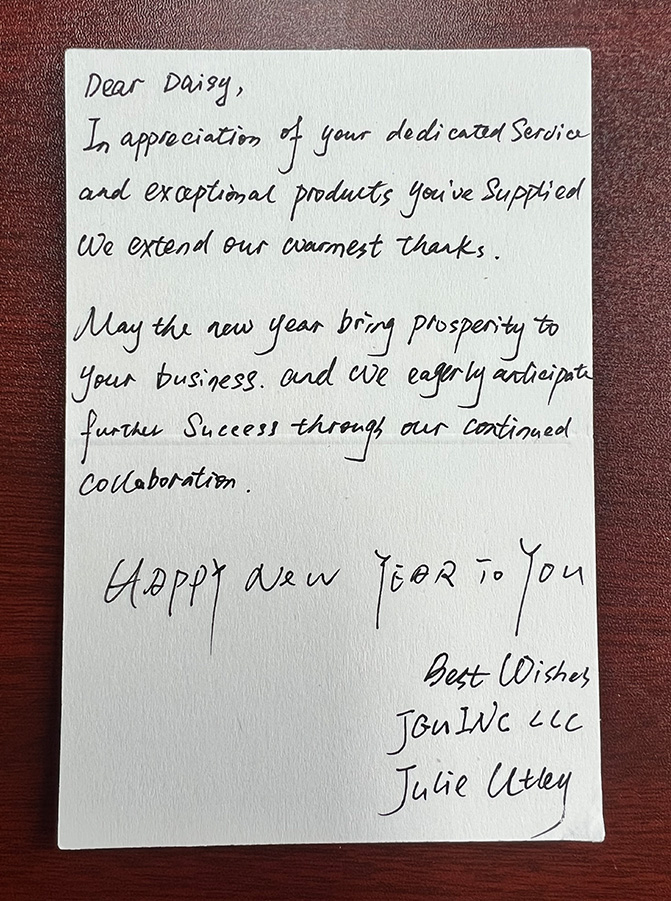 Dear Daisy,
In appreciation of your dedicated Service
and exceptional products you've Supplied
We extend our warmest thanks.
May the new year bring prosperity to
your business. and we eagerly anticipate
further Success through our continued
collaboration.
HAPPY New YEAR To You
Best Wishes
JGUINC LLC
Julie Utley